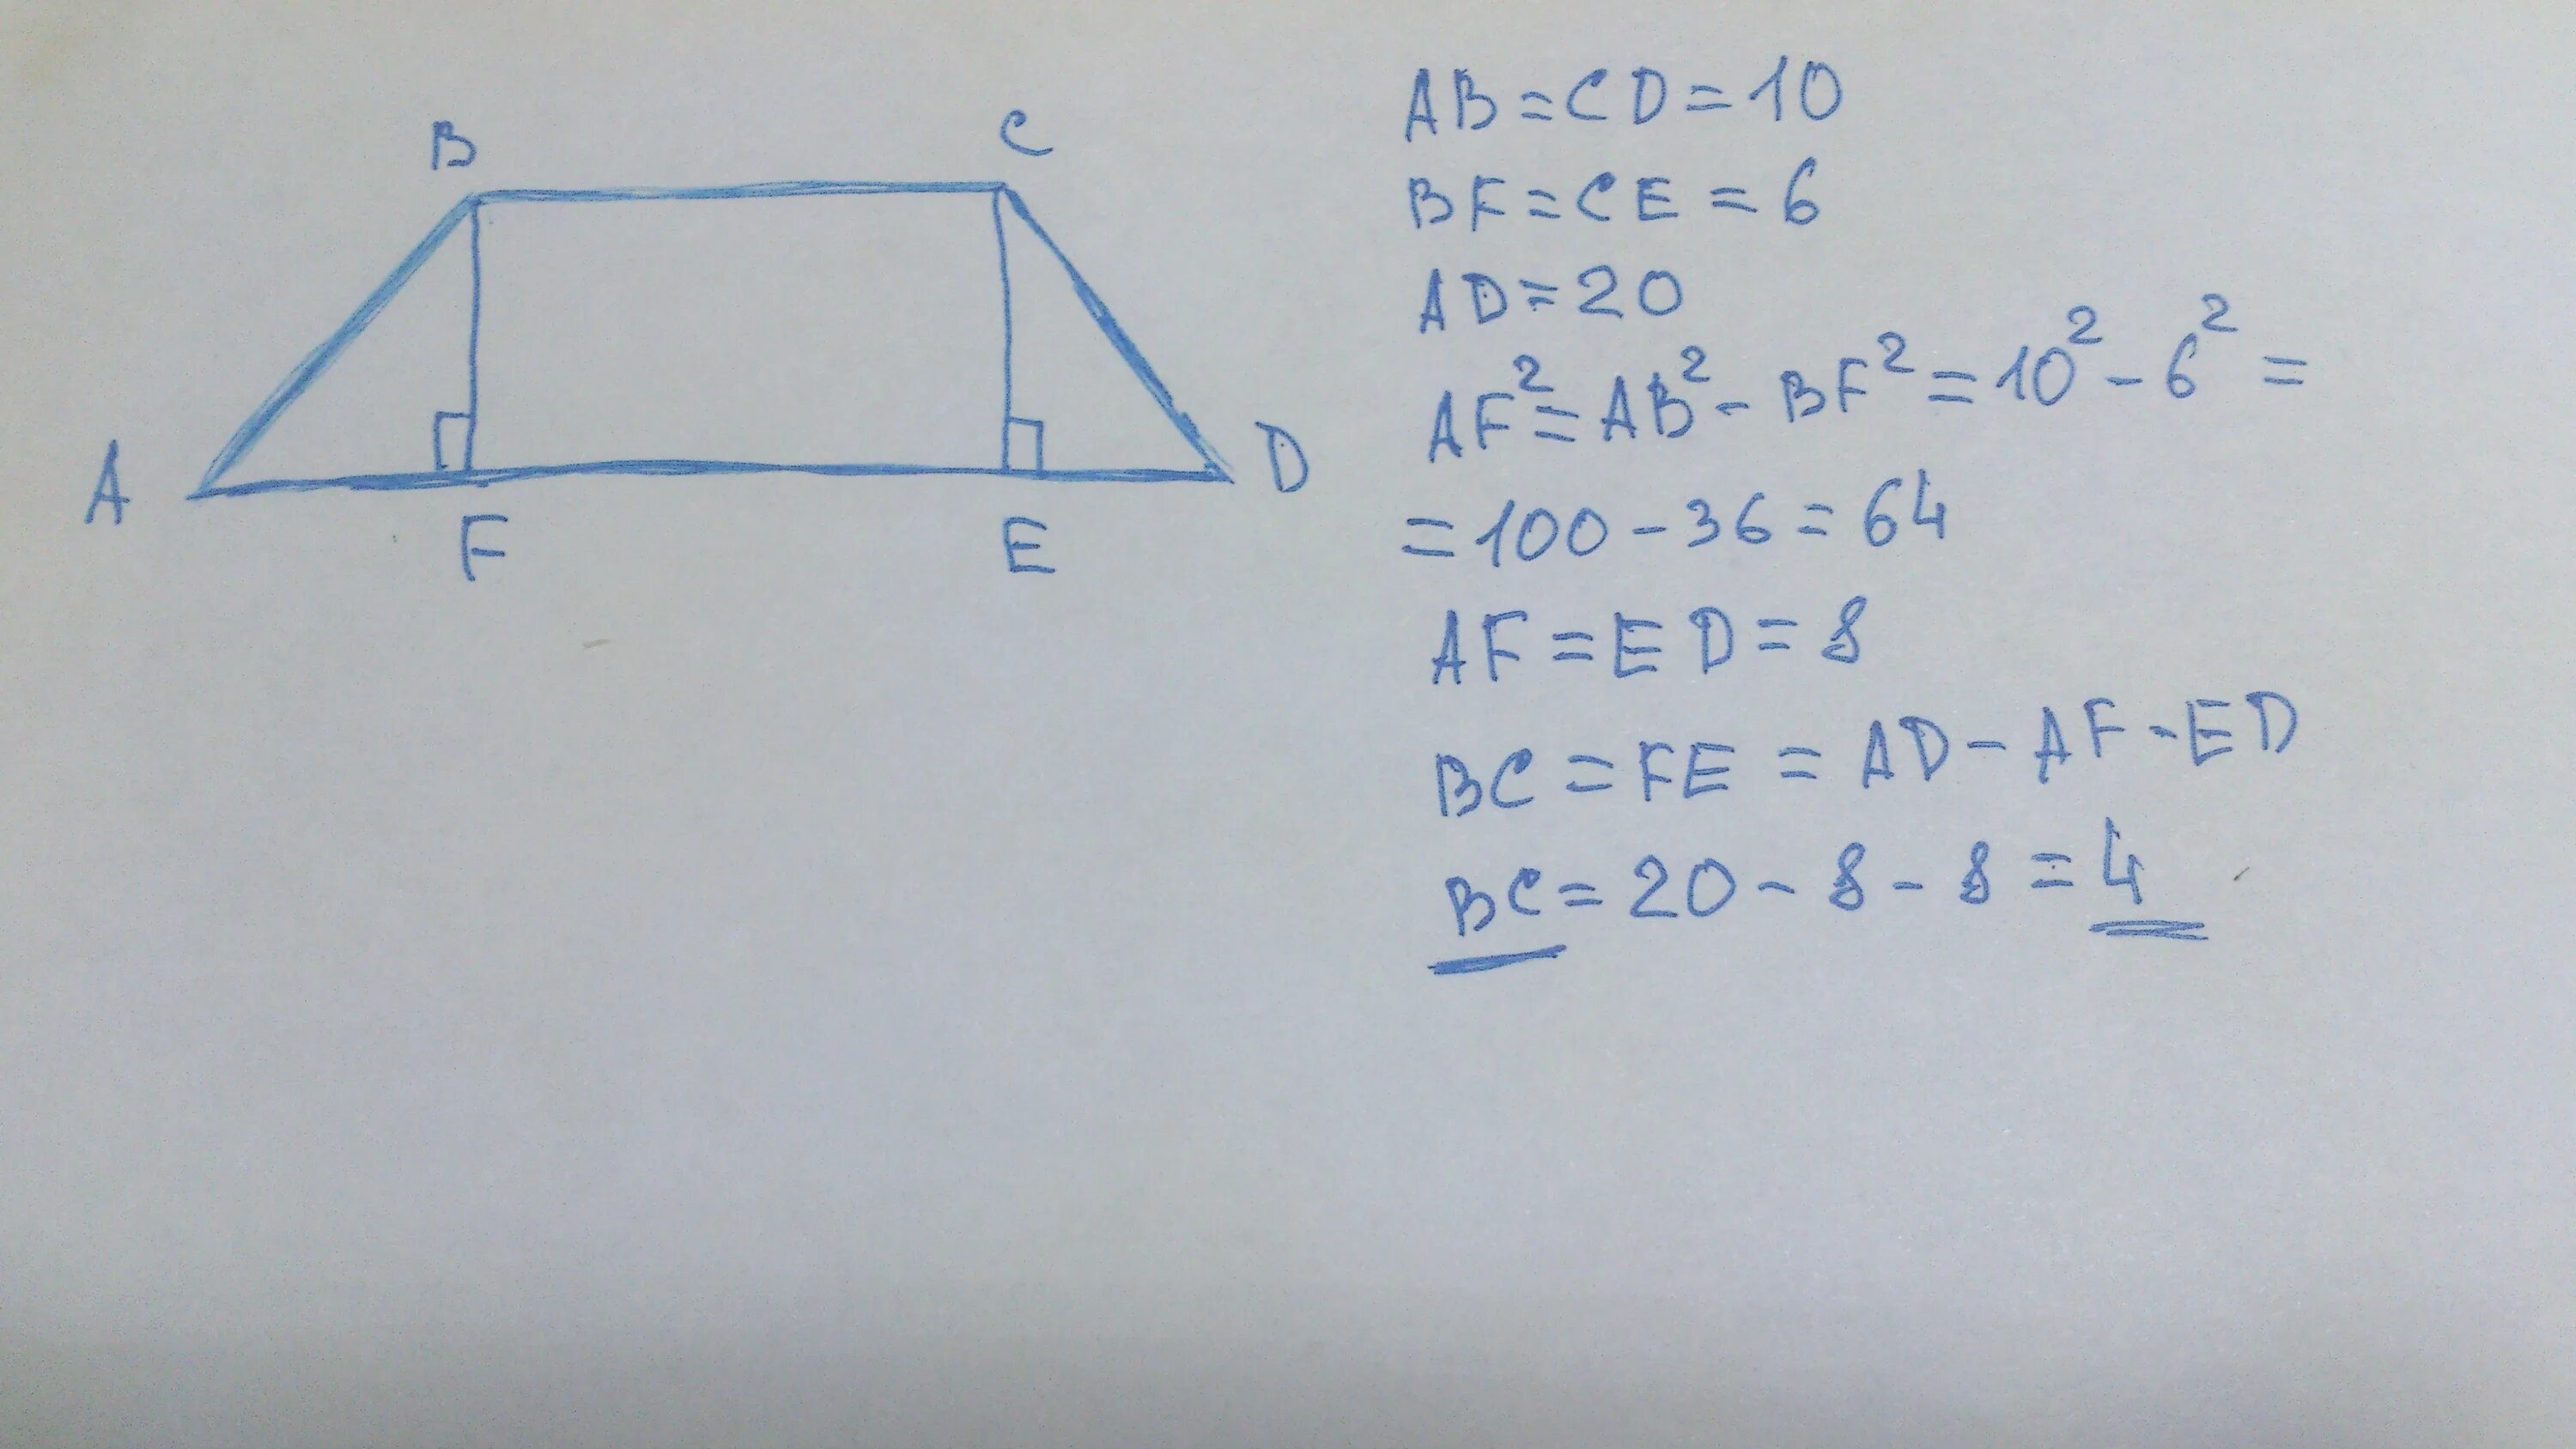 B C
A D
F E
AB=CD=10
BF=CE=6
AD=20
AF²=AB²-BF²=10²-6²=
=100-36=64
AF=ED=8
BC=FE=AD-AF-ED
BC=20-8-8=4